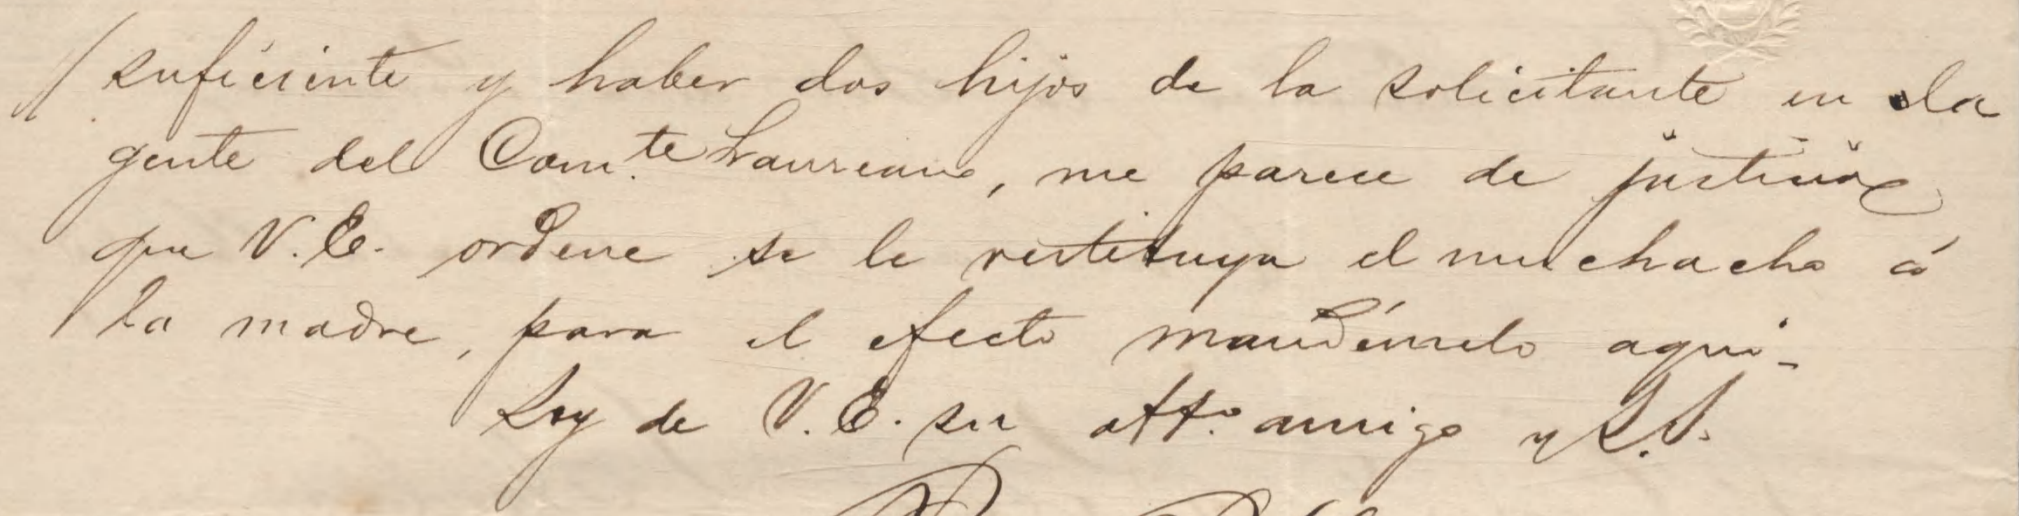 suficiente y haber dos hijos de la solicitante en la
gente del Com.te Laureano, me parece de justicia
que V. E. ordene se le restituya el muchacho á
la madre, para el efecto mandémelo aqui-
Soy de V. E. su atto. amigo y S. S.